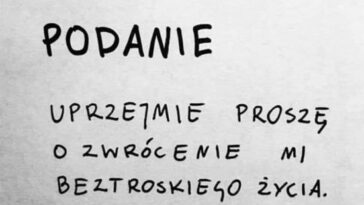 PODANIE
UPRZEJMIE PROSZĘ
O ZWRÓCENIE MI
BEZTROSKIEGO ŻYCIA.